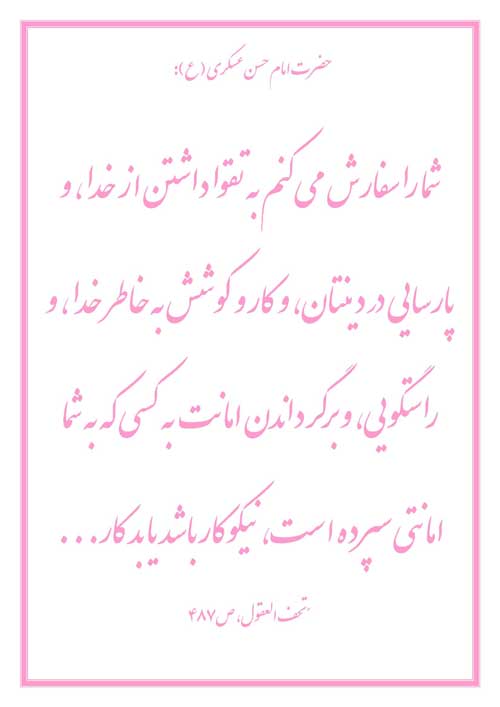 حضرت امام حسن عسکری (ع):
شما را سفارش می کنم به تقوا داشتن از خدا، و
پارسایی در دینتان، و کار و کوشش به خاطر خدا، و
راستگویی، و برگرداندن امانت به کسی که به شما
امانتی سپرده است، نیکوکار باشد یا بدکار...
تحف العقول، ص۴۸۷